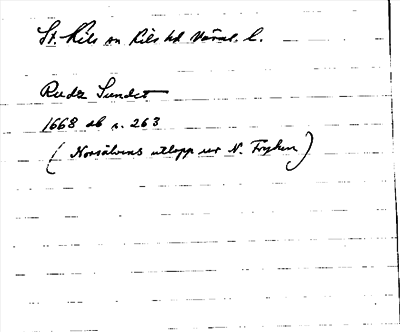 St. Kils sn Kils hd Värml. l.
Ruda Sundet
1668 db s. 263
(Norsälvens utlopp ur N. Fryken)